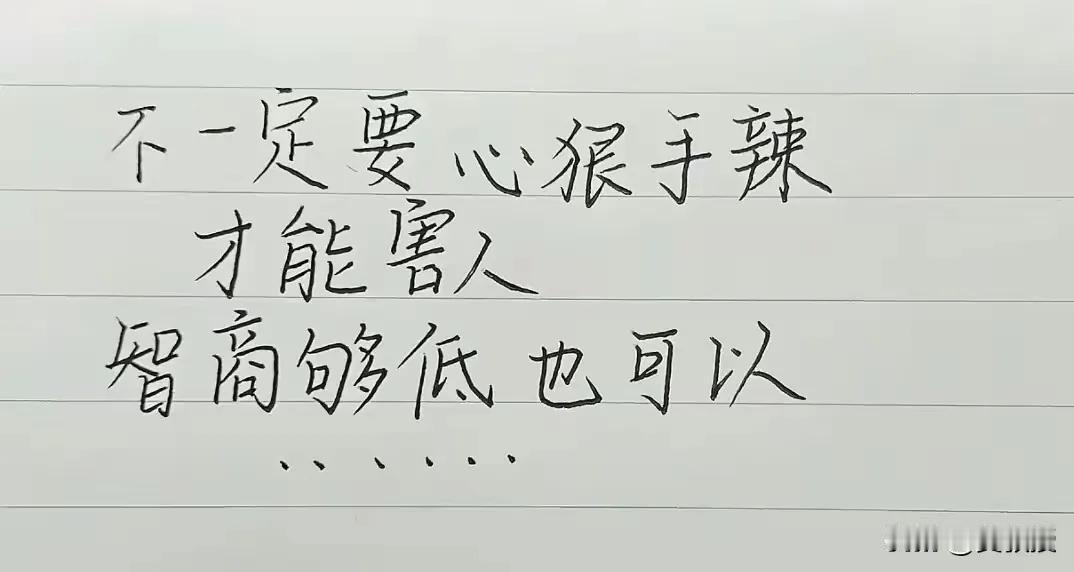 不一定要心狠手辣
才能害人
智商够低也可以
......